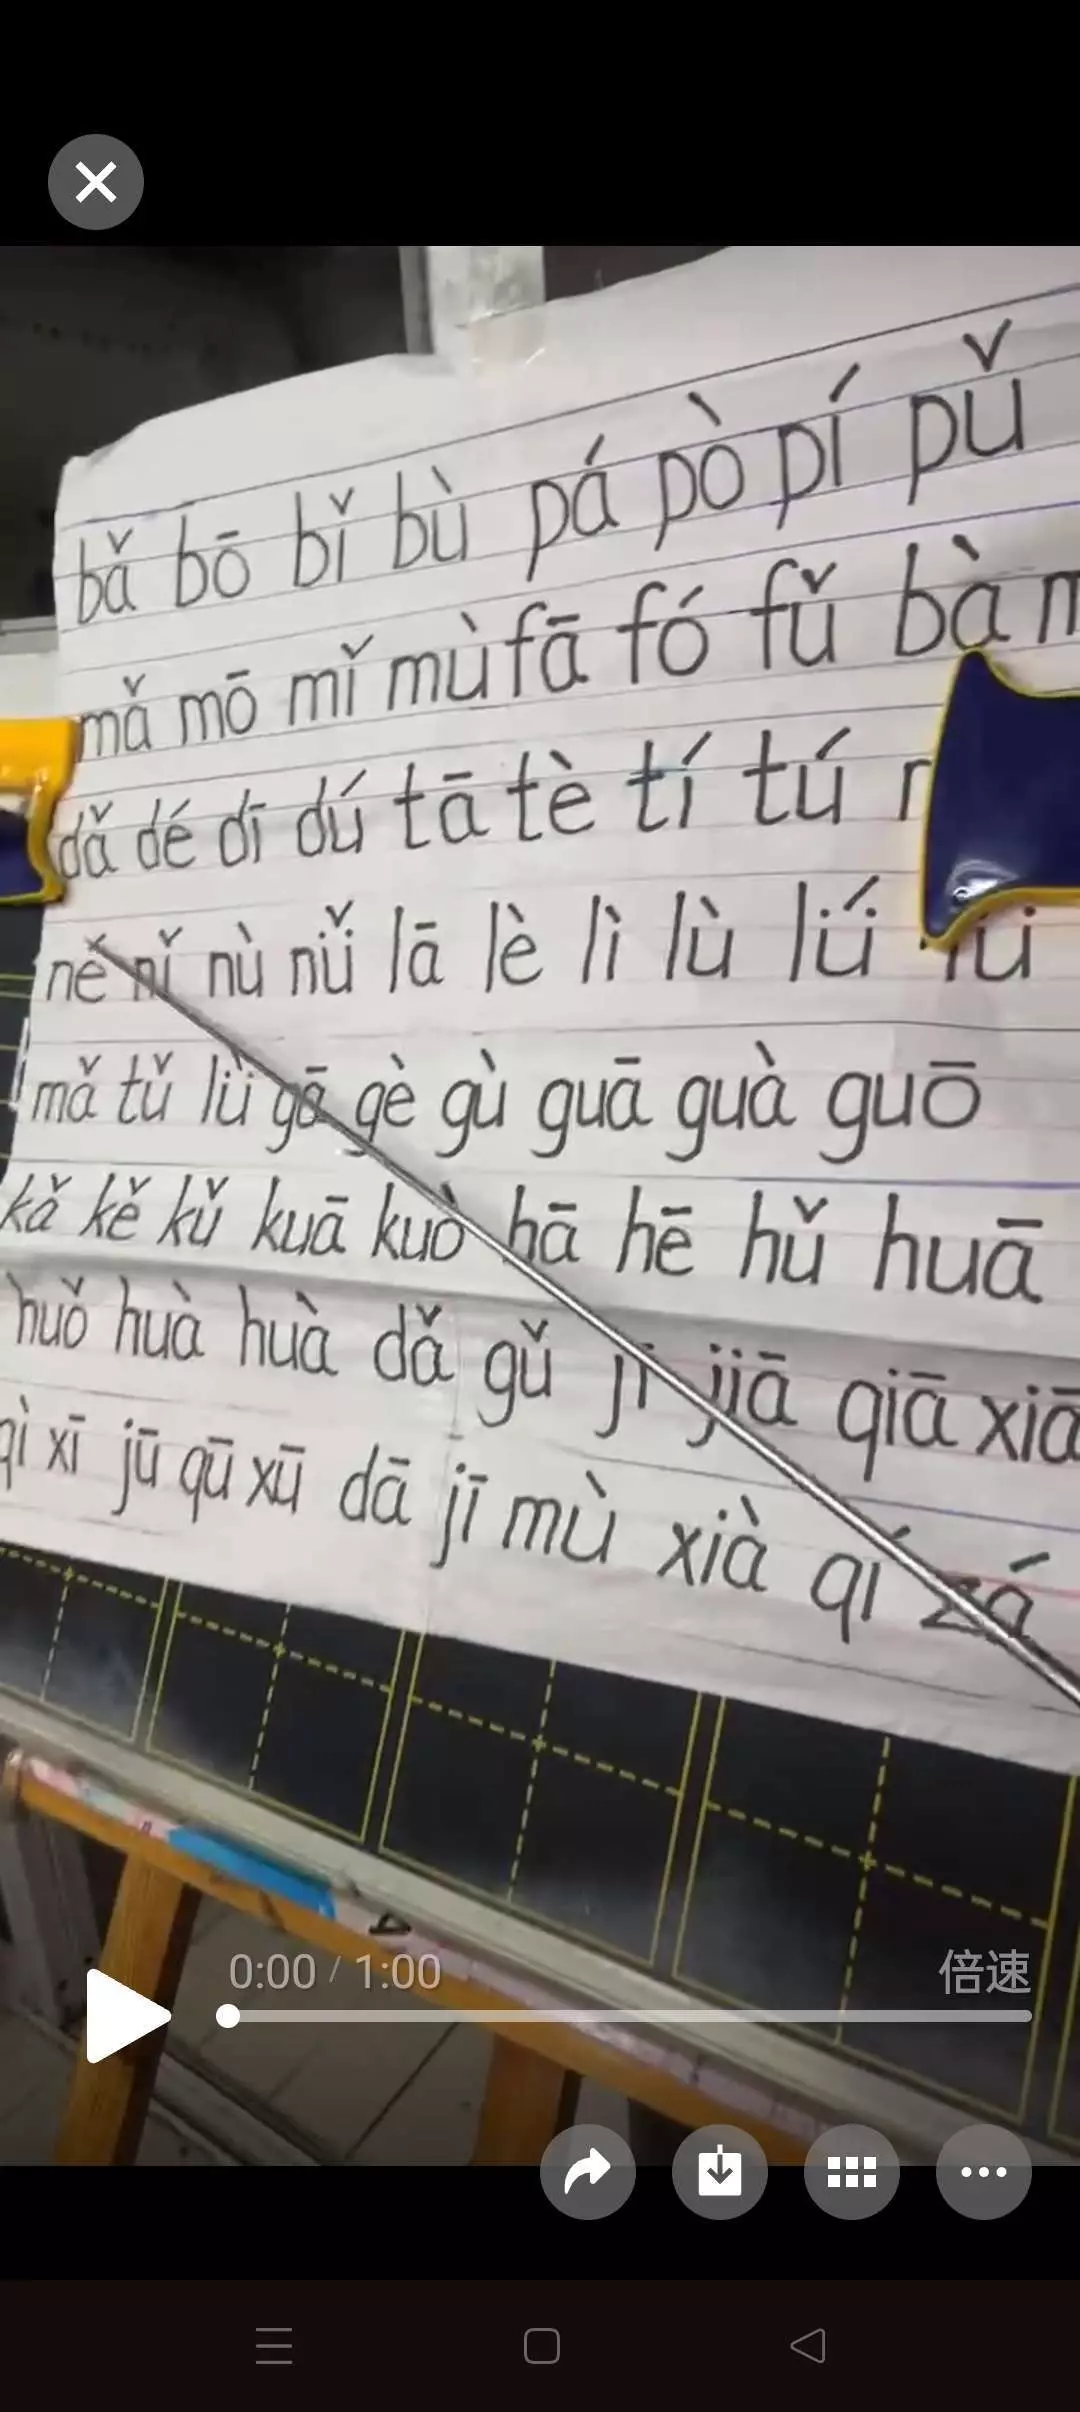 bǎ bō bǐ bù pá pò pí pǔ
mǎ mō mǐ mù fā fó fǔ bà
dǎ dé dī dú tā tè tí tú
ně nǐ nù nǚ lā lè lì lù lǘ
mǎ tǔ lǜ gā gè gù guā guà guō
kǎ kě kǔ kuā kuò hā hē hǔ huā
huǒ huà huà dǎ gǔ jī jiā qiā xiā
qì xī jū qū xū dā jī mù xià qí zá
0:00 / 1:00
倍速